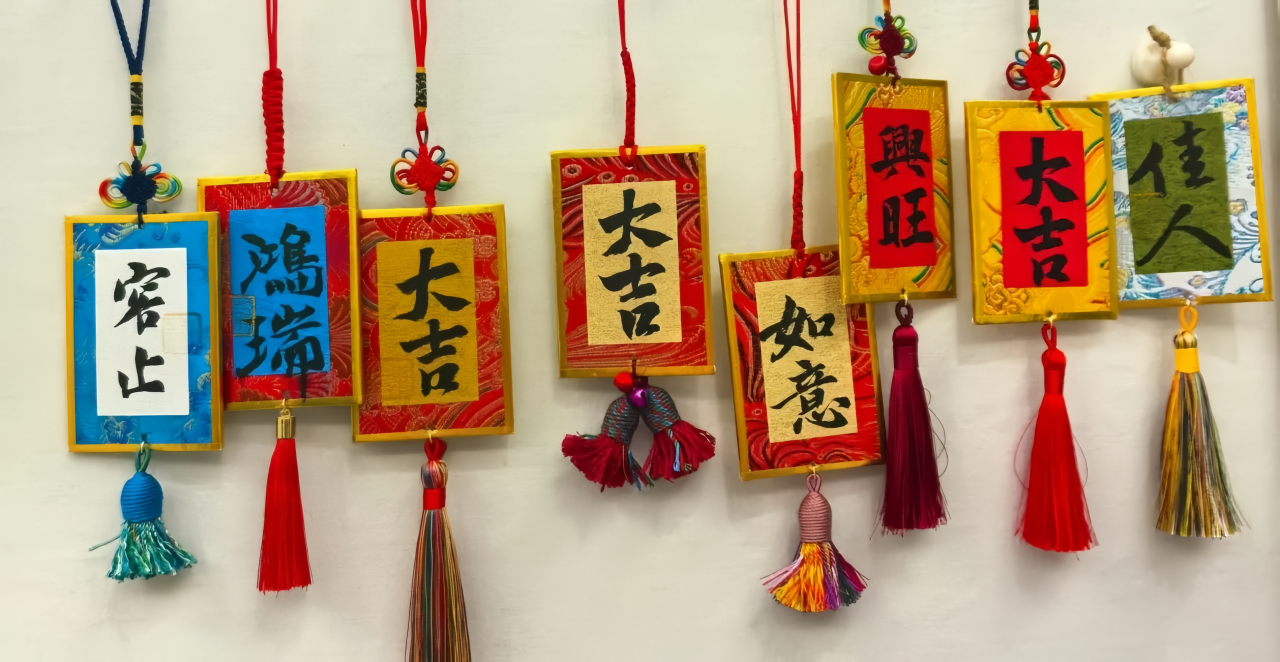 容止
鴻瑞
大吉
大吉
如意
興旺
大吉
佳人